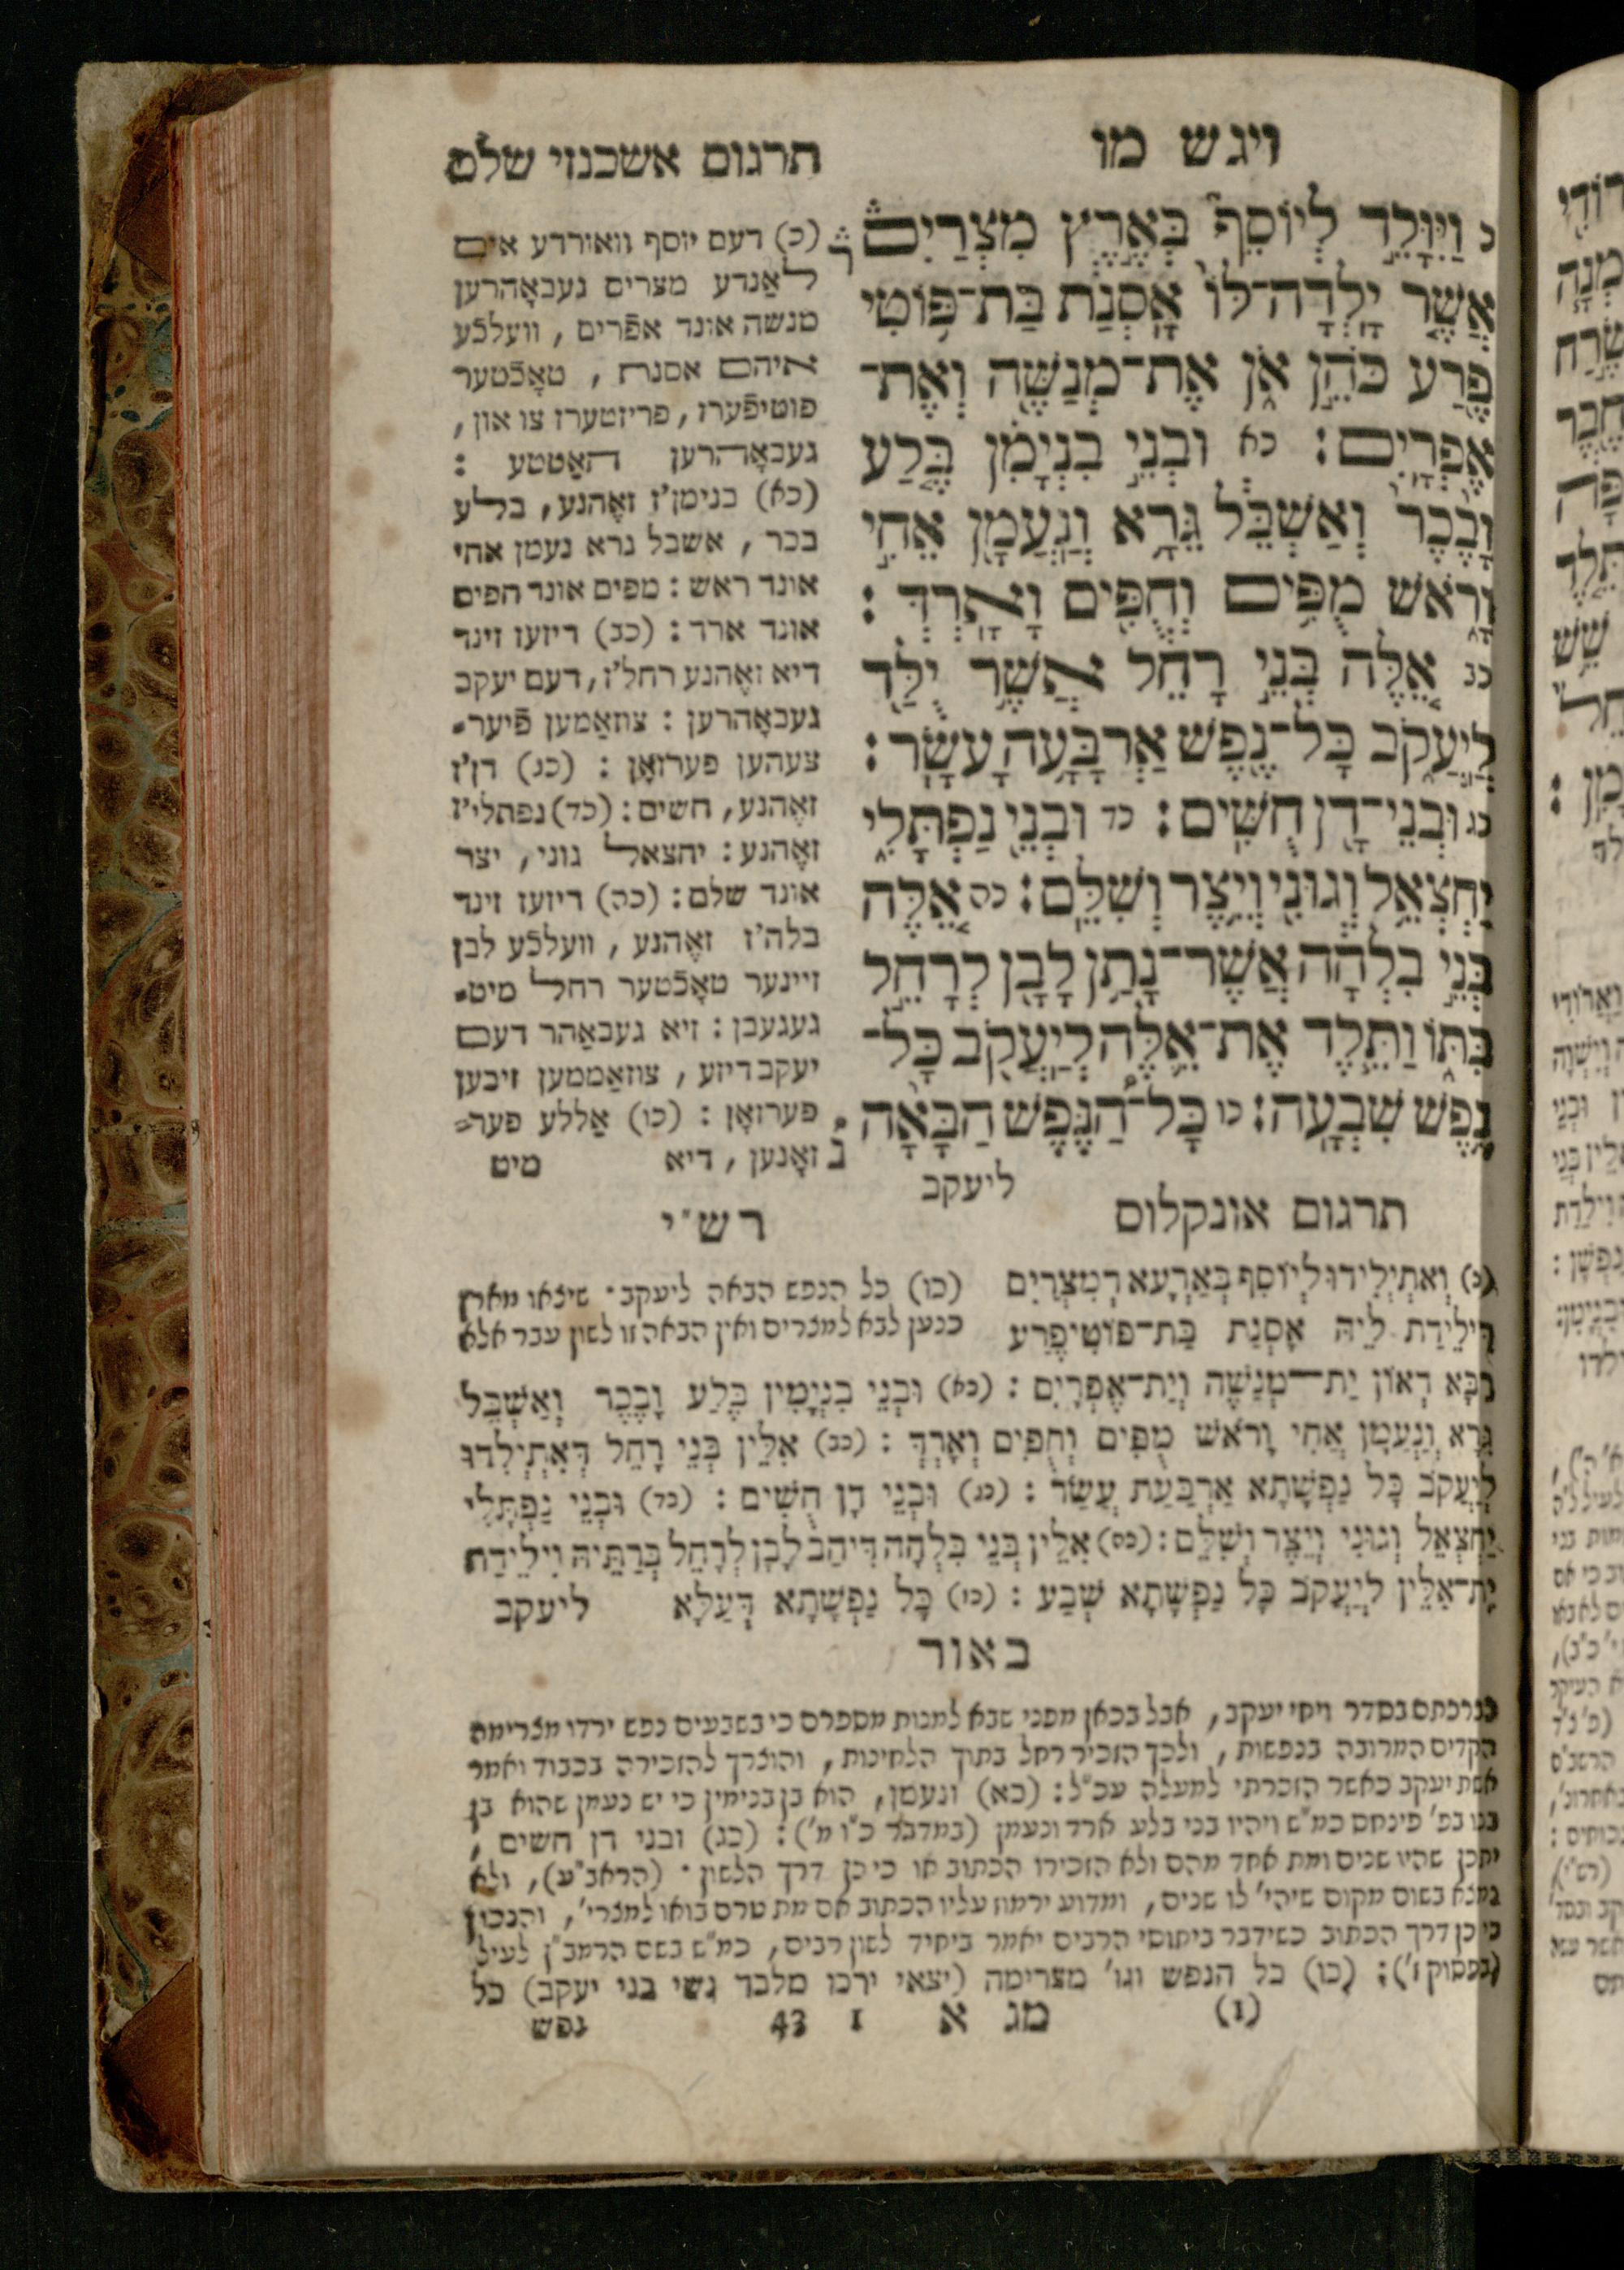 ויגש מו
כ וַיִּוָּלֵ֣ד לְיוֹסֵף֮ בְּאֶ֣רֶץ מִצְרַיִם֒
אֲשֶׁ֤ר יָֽלְדָה־לּוֹ֙ אָֽסְנַ֔ת בַּת־פּ֥וֹטִי
פֶ֖רַע כֹּהֵ֣ן אֹ֑ן אֶת־מְנַשֶּׁ֖ה וְאֶת־
אֶפְרָֽיִם׃ כא וּבְנֵ֣י בִנְיָמִ֗ן בֶּ֤לַע
וָבֶ֙כֶר֙ וְאַשְׁבֵּ֔ל גֵּרָ֥א וְנַֽעֲמָ֖ן אֵחִ֣י
וָרֹ֑אשׁ מֻפִּ֥ים וְחֻפִּ֖ים וָאָֽרְדְּ׃
כב אֵ֚לֶּה בְּנֵ֣י רָחֵ֔ל אֲשֶׁ֥ר יֻלַּ֖ד
לְיַֽעֲקֹ֑ב כָּל־נֶ֖פֶשׁ אַרְבָּעָ֥ה עָשָֽׂר׃
כג וּבְנֵי־דָ֖ן חֻשִֽׁים׃ כד וּבְנֵ֖י נַפְתָּלִ֑י
יַחְצְאֵ֥ל וְגוּנִ֖י וְיֵ֥צֶר וְשִׁלֵּֽם׃ כה אֵ֚לֶּה
בְּנֵ֣י בִלְהָ֔ה אֲשֶׁר־נָתַ֥ן לָבָ֖ן לְרָחֵ֣ל
בִּתּ֑וֹ וַתֵּ֧לֶד אֶת־אֵ֛לֶּה לְיַֽעֲקֹ֖ב כָּל־
נֶ֥פֶשׁ שִׁבְעָֽה׃ כו כָּל־הַ֠נֶּפֶשׁ הַבָּאָ֨ה
ליעקב
תרגום אשכנזי שלם
(כ) דעם יוסף וואורדע אים
לאַנדע מצרים געבאָהרען
מנשה אונד אפֿרים, וועלכֿע
איהם אסנת, טאָכֿטער
פוטיפֿערז, פריזטערז צו און,
געבאָהרען האַטטע :
(כא) בנימן'ז זאֶהנע, בלע
בכר, אשבל גרא נעמן אחי
אונד ראש : מפים אונד חפים
אונד ארד : (כב) דיזען זינד
דיא זאֶהנע רחל'ז, דעם יעקב
געבאָהרען : צוזאַמען פֿיער-
צעהען פערזאָן : (כג) דן'ז
זאֶהנע, חשים : (כד) נפתלי'ז
זאֶהנע : יחצאל גוני, יצר
אונד שלם : (כה) דיזען זינד
בלה'ז זאֶהנע, וועלכֿע לבן
זיינער טאָכֿטער רחל מיט-
געגעבן : זיא געבאַהר דעם
יעקב דיזע, צוזאַממען זיבען
פערזאָן : (כו) אַללע פער-
זאָנען, דיא מיט
תרגום אונקלוס
(כ) וְאִתְיְלִידוּ לְיוֹסֵף בְּאַרְעָא דְמִצְרַיִם
דִּילֵידַת לֵיהּ אָסְנַת בַּת־פּוֹטִיפֶרַע
רַבָּא דְאוֹן יַת־מְנַשֶּׁה וְיַת־אֶפְרָיִם : (כא) וּבְנֵי בִנְיָמִין בֶּלַע וָבֶכֶר וְאַשְׁבֵּל
גֵּרָא וְנַעֲמָן אֵחִי וָרֹאשׁ מֻפִּים וְחֻפִּים וָאָרְדְּ : (כב) אִלֵּין בְּנֵי רָחֵל דְּאִתְיְלִידוּ
לְיַעֲקֹב כָּל נַפְשָׁתָא אַרְבַּעַת עֲשַׂר : (כג) וּבְנֵי דָן חֻשִׁים : (כד) וּבְנֵי נַפְתָּלִי
יַחְצְאֵל וְגוּנִי וְיֵצֶר וְשִׁלֵּם : (כה) אִלֵּין בְּנֵי בִלְהָה דִּיהַב לָבָן לְרָחֵל בְּרַתֵּיהּ וִילֵידַת
יָת־אִלֵּין לְיַעֲקֹב כָּל נַפְשָׁתָא שְׁבַע : (כו) כָּל נַפְשָׁתָא דְּעַלָּא ליעקב
רש"י
(כו) כל הנפש הבאה ליעקב. שיצאו מארץ
כנען לבא למצרים ואין הבאה זו לשון עבר אלא
באור
בברכתם בסדר ויחי יעקב, אבל בכאן מפני שבא למנות מספרם כי בשבעים נפש ירדו מצרימה
הקדים המרובה בנפשות, ולכך הזכיר רחל בתוך הלחינות, והוצרך להזכירה בכבוד ואמר
אשת יעקב כאשר הזכרתי למעלה עכ"ל : (כא) ונעמן, הוא בן בנימין כי יש נעמן שהוא בן
בנו בפ' פינחס כמ"ש ויהיו בני בלע ארד ונעמן (במדבר כ"ו מ') : (כג) ובני דן חשים,
יתכן שהיו שנים ומת אחד מהם ולא הזכירו הכתוב או כי כן דרך הלשון. (הראב"ע), ולא
נמצא בשום מקום שיהי' לו שנים, ומדוע ירמוז עליו הכתוב אם מת טרם בואו למצרי', והנכון
כי כן דרך הכתוב כשידבר ביחוסי הרבים יאמר ביחיד לשון רבים, כמ"ש בשם הרמב"ן לעיל
(בפסוק ז') : (כו) כל הנפש וגו' מצרימה (יצאי ירכו מלבד נשי בני יעקב) כל
(I) מג א 1 43 נפש